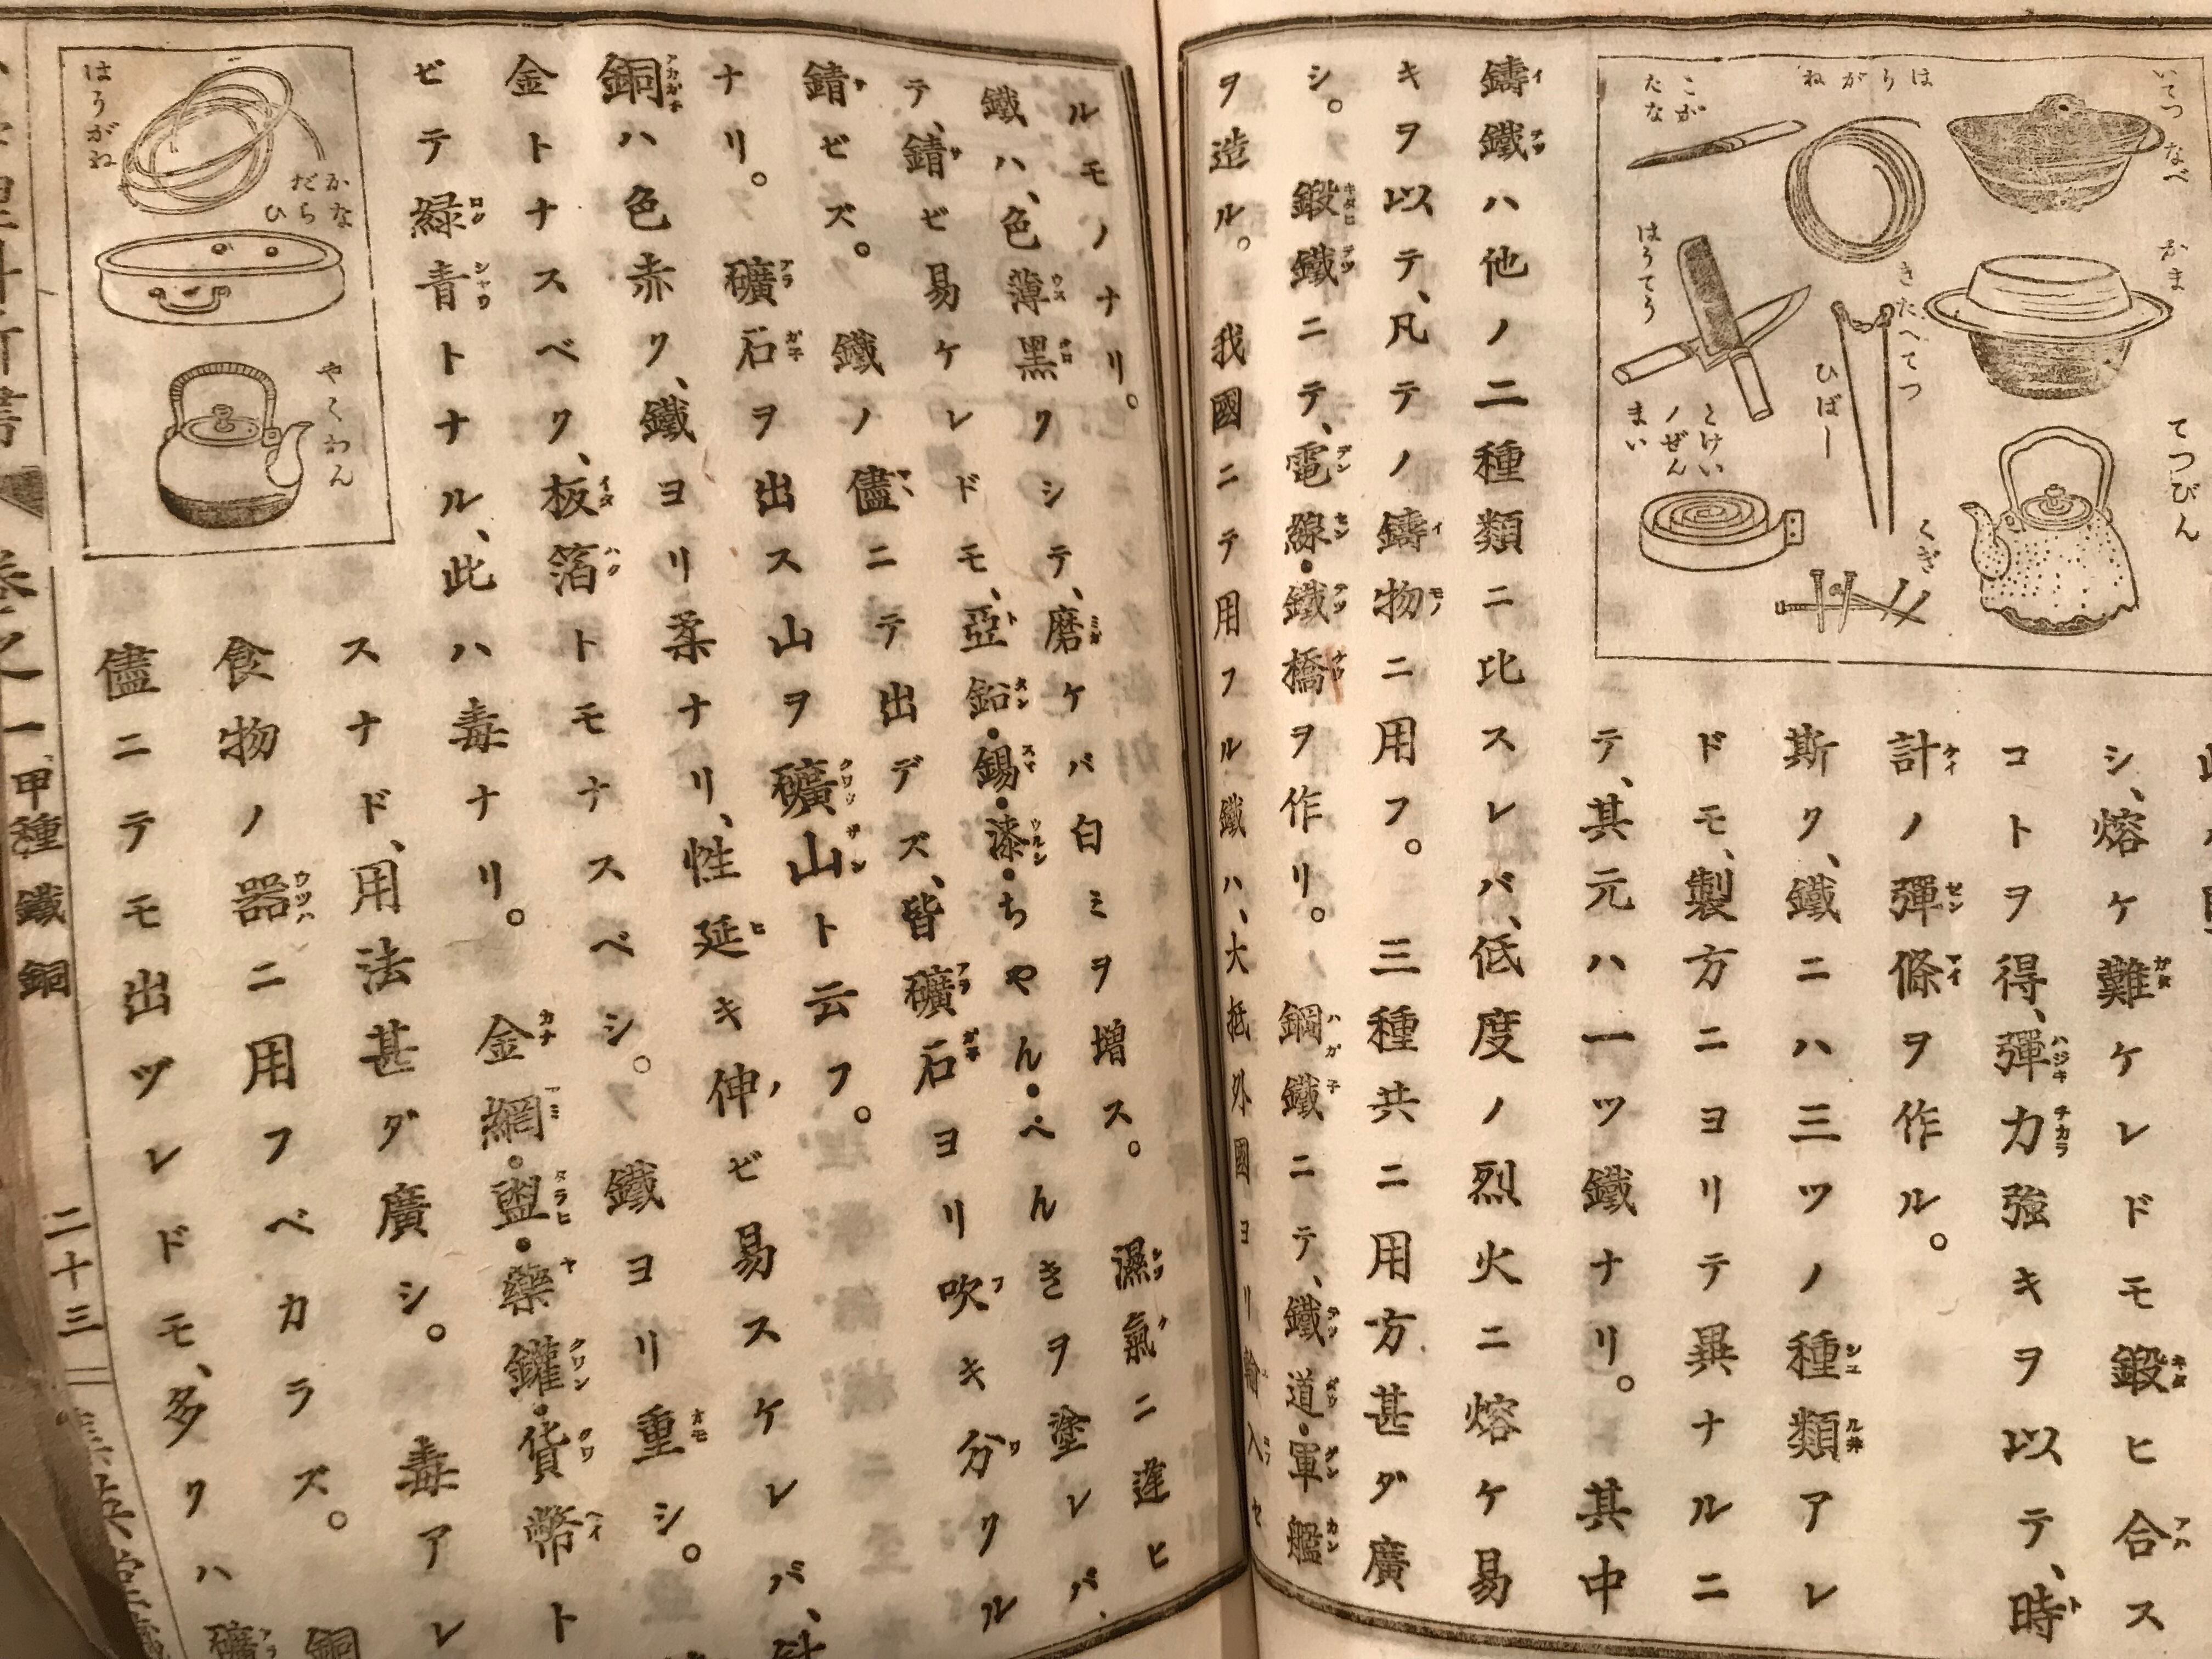 いてつなべ
かま
てつびん
はりがね
きたへてつ
ひばし
くぎ
こがたな
はうてう
とけいノぜんまい
シ、熔ケ難ケレドモ鍛ヒ合ス
コトヲ得、彈力強キヲ以テ、時
計ノ彈條ヲ作ル。
斯ク、鐵ニハ三ツノ種類アレ
ドモ、製方ニヨリテ異ナルニ
テ、其元ハ一ツ鐵ナリ。 其中
鑄鐵ハ他ノ二種類ニ比スレバ、低度ノ烈火ニ熔ケ易
キヲ以テ、凡テノ鑄物ニ用フ。 三種共ニ用方甚ダ廣
シ。 鍛鐵ニテ、電線・鐵橋ヲ作リ。 鋼鐵ニテ、鐵道・軍艦
ヲ造ル。 我國ニテ用フル鐵ハ、大抵外國ヨリ輸入セ
ルモノナリ。
鐵ハ、色薄黑クシテ、磨ケバ白ミヲ增ス。 濕氣ニ逢ヒ
テ、錆ゼ易ケレドモ、亞鉛・錫・漆・ちやん・ぺんきヲ塗レバ、
錆ゼズ。 鐵ノ儘ニテ出デズ、皆礦石ヨリ吹キ分クル
ナリ。 礦石ヲ出ス山ヲ礦山ト云フ。
銅ハ色赤ク、鐵ヨリ柔ナリ、性延キ伸ゼ易スケレバ、
金トナスベク、板箔トモナスベシ。 鐵ヨリ重シ。
ゼテ綠青トナル、此ハ毒ナリ。 金網・盥・藥鑵・貨幣ト
スナド、用法甚ダ廣シ。 毒アレ
食物ノ器ニ用フベカラズ。 銅
儘ニテモ出ヅレドモ、多クハ礦
はりがね
かなだらひ
やくわん
卷之一 甲種 鐵 銅
二十三